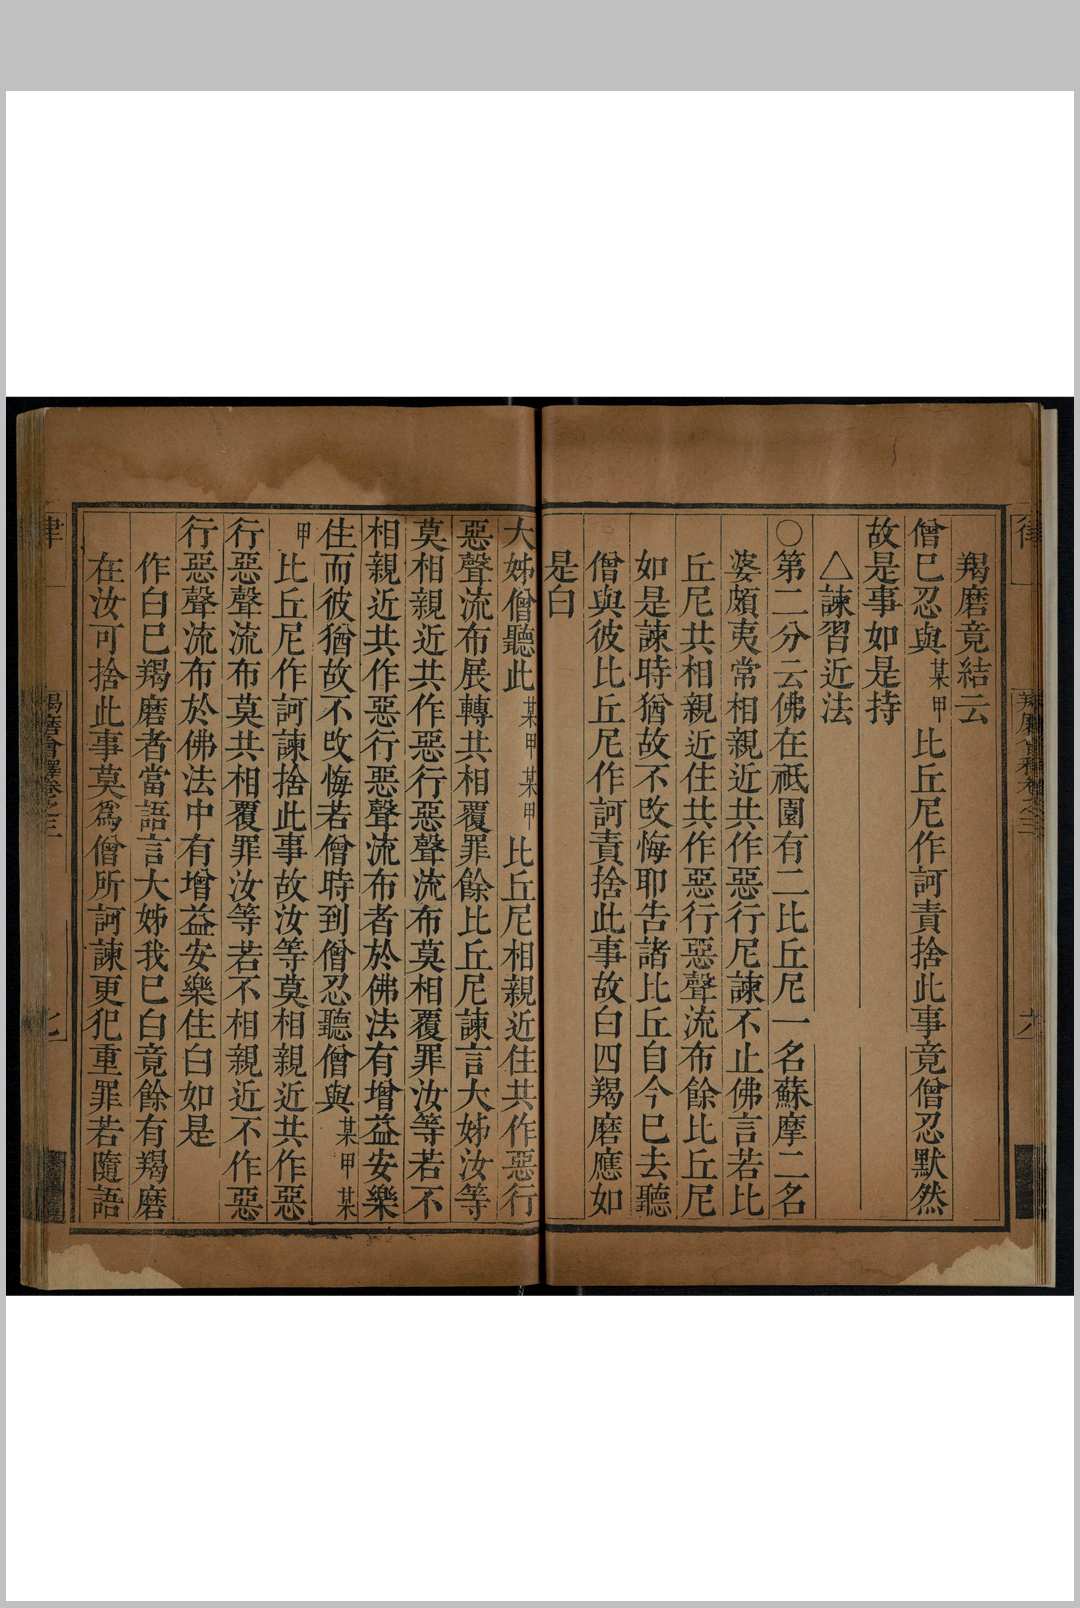 羯磨竟結云
僧巳忍與某甲比丘尼作訶責捨此事竟僧忍默然
故是事如是持
△諫習近法
○第二分云佛在祇園有二比丘尼一名蘇摩二名
婆頗夷常相親近共作惡行尼諫不止佛言若比
丘尼共相親近住共作惡行惡聲流布餘比丘尼
如是諫時猶故不改悔耶告諸比丘自今巳去聽
僧與彼比丘尼作訶責捨此事故白四羯磨應如
是白
大姊僧聽此某甲某甲比丘尼相親近住共作惡行
惡聲流布展轉共相覆罪餘比丘尼諫言大姊汝等
莫相親近共作惡行惡聲流布莫相覆罪汝等若不
相親近共作惡行惡聲流布者於佛法有增益安樂
住而彼猶故不改悔若僧時到僧忍聽僧與某甲某
甲比丘尼作訶諫捨此事故汝等莫相親近共作惡
行惡聲流布莫共相覆罪汝等若不相親近不作惡
行惡聲流布於佛法中有增益安樂住白如是
作白巳羯磨者當語言大姊我巳白竟餘有羯磨
在汝可捨此事莫為僧所訶諫更犯重罪若隨語
律
羯磨會釋卷之三
七